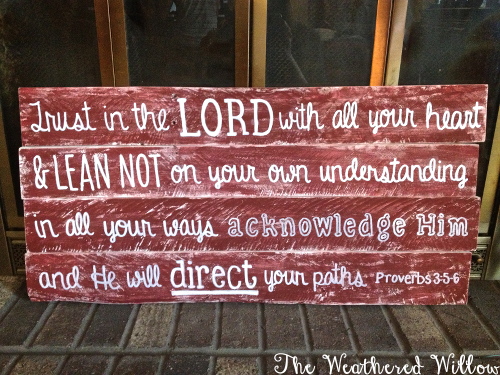 Trust in the LORD with all your heart
& LEAN NOT on your own understanding
in all your ways acknowledge Him
and He will direct your paths Proverbs 3:5-6
The Weathered Willow